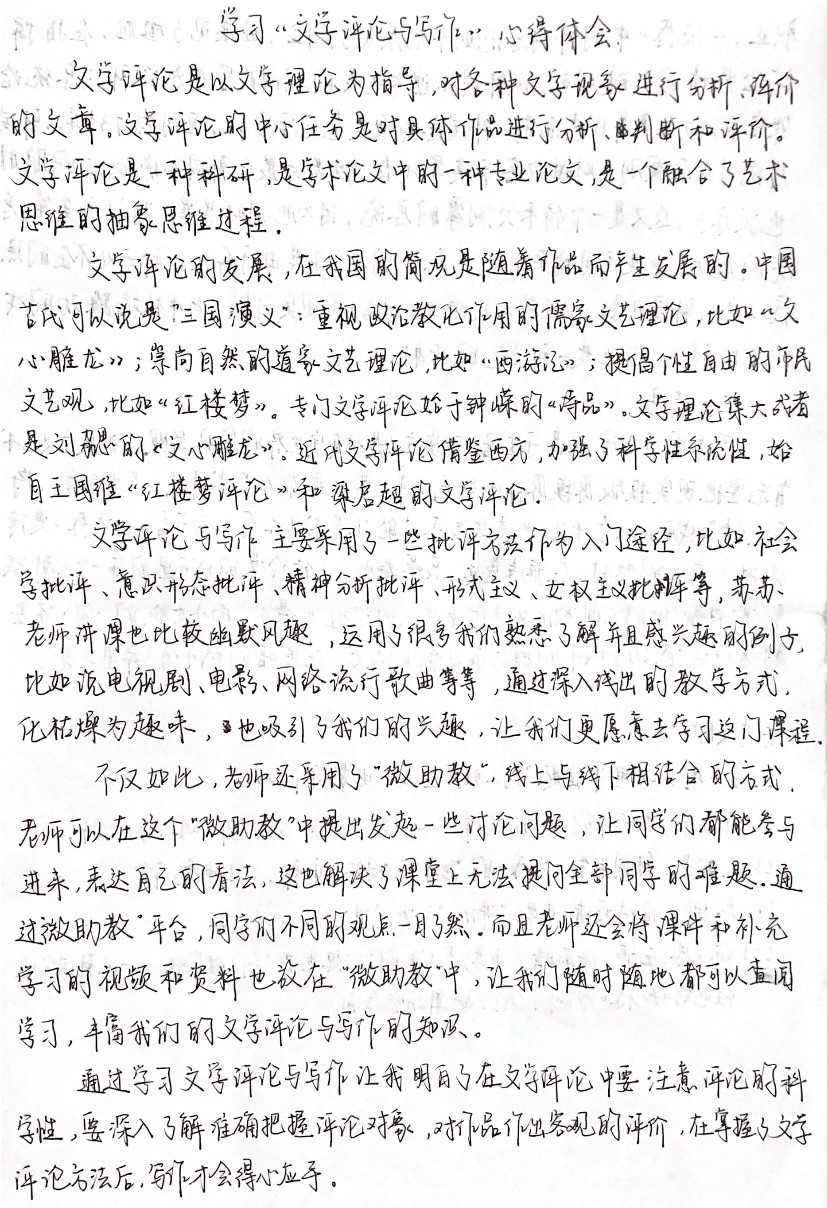 学习“文学评论与写作”心得体会
文学评论是以文学理论为指导,对各种文学现象进行分析、评价
的文章。文学评论的中心任务是对具体作品进行分析、判断和评价。
文学评论是一种科研,是学术论文中的一种专业论文,是一个融合了艺术
思维的抽象思维过程.
文学评论的发展,在我国的简况是随着作品而产生发展的。中国
古代可以说是“三国演义”:重视政治教化作用的儒家文艺理论,比如《文
心雕龙》;崇尚自然的道家文艺理论,比如《西游记》;提倡个性自由的市民
文艺观,比如《红楼梦》。专门文学评论始于钟嵘的《诗品》。文学理论集大成者
是刘勰的《文心雕龙》。近代文学评论借鉴西方,加强了科学性系统性,始
自王国维《红楼梦评论》和梁启超的文学评论.
文学评论与写作主要采用了一些批评方法作为入门途径,比如社会
学批评、意识形态批评、精神分析批评、形式主义、女权主义批评等,苏苏、
老师讲课也比较幽默风趣,运用了很多我们熟悉了解并且感兴趣的例子,
比如说电视剧、电影、网络流行歌曲等等,通过深入浅出的教学方式,
化枯燥为趣味,也吸引了我们的兴趣,让我们更愿意去学习这门课程.
不仅如此,老师还采用了“微助教”,线上与线下相结合的方式,
老师可以在这个“微助教”中提出发起一些讨论问题,让同学们都能参与
进来,表达自己的看法,这也解决了课堂上无法提问全部同学的难题.通
过“微助教”平台,同学们不同的观点一目了然.而且老师还会将课件和补充
学习的视频和资料也放在“微助教”中,让我们随时随地都可以查阅
学习,丰富我们的文学评论与写作的知识。
通过学习文学评论与写作让我明白了在文学评论中要注意评论的科
学性,要深入了解准确把握评论对象,对作品作出客观的评价,在掌握了文学
评论方法后,写作才会得心应手。